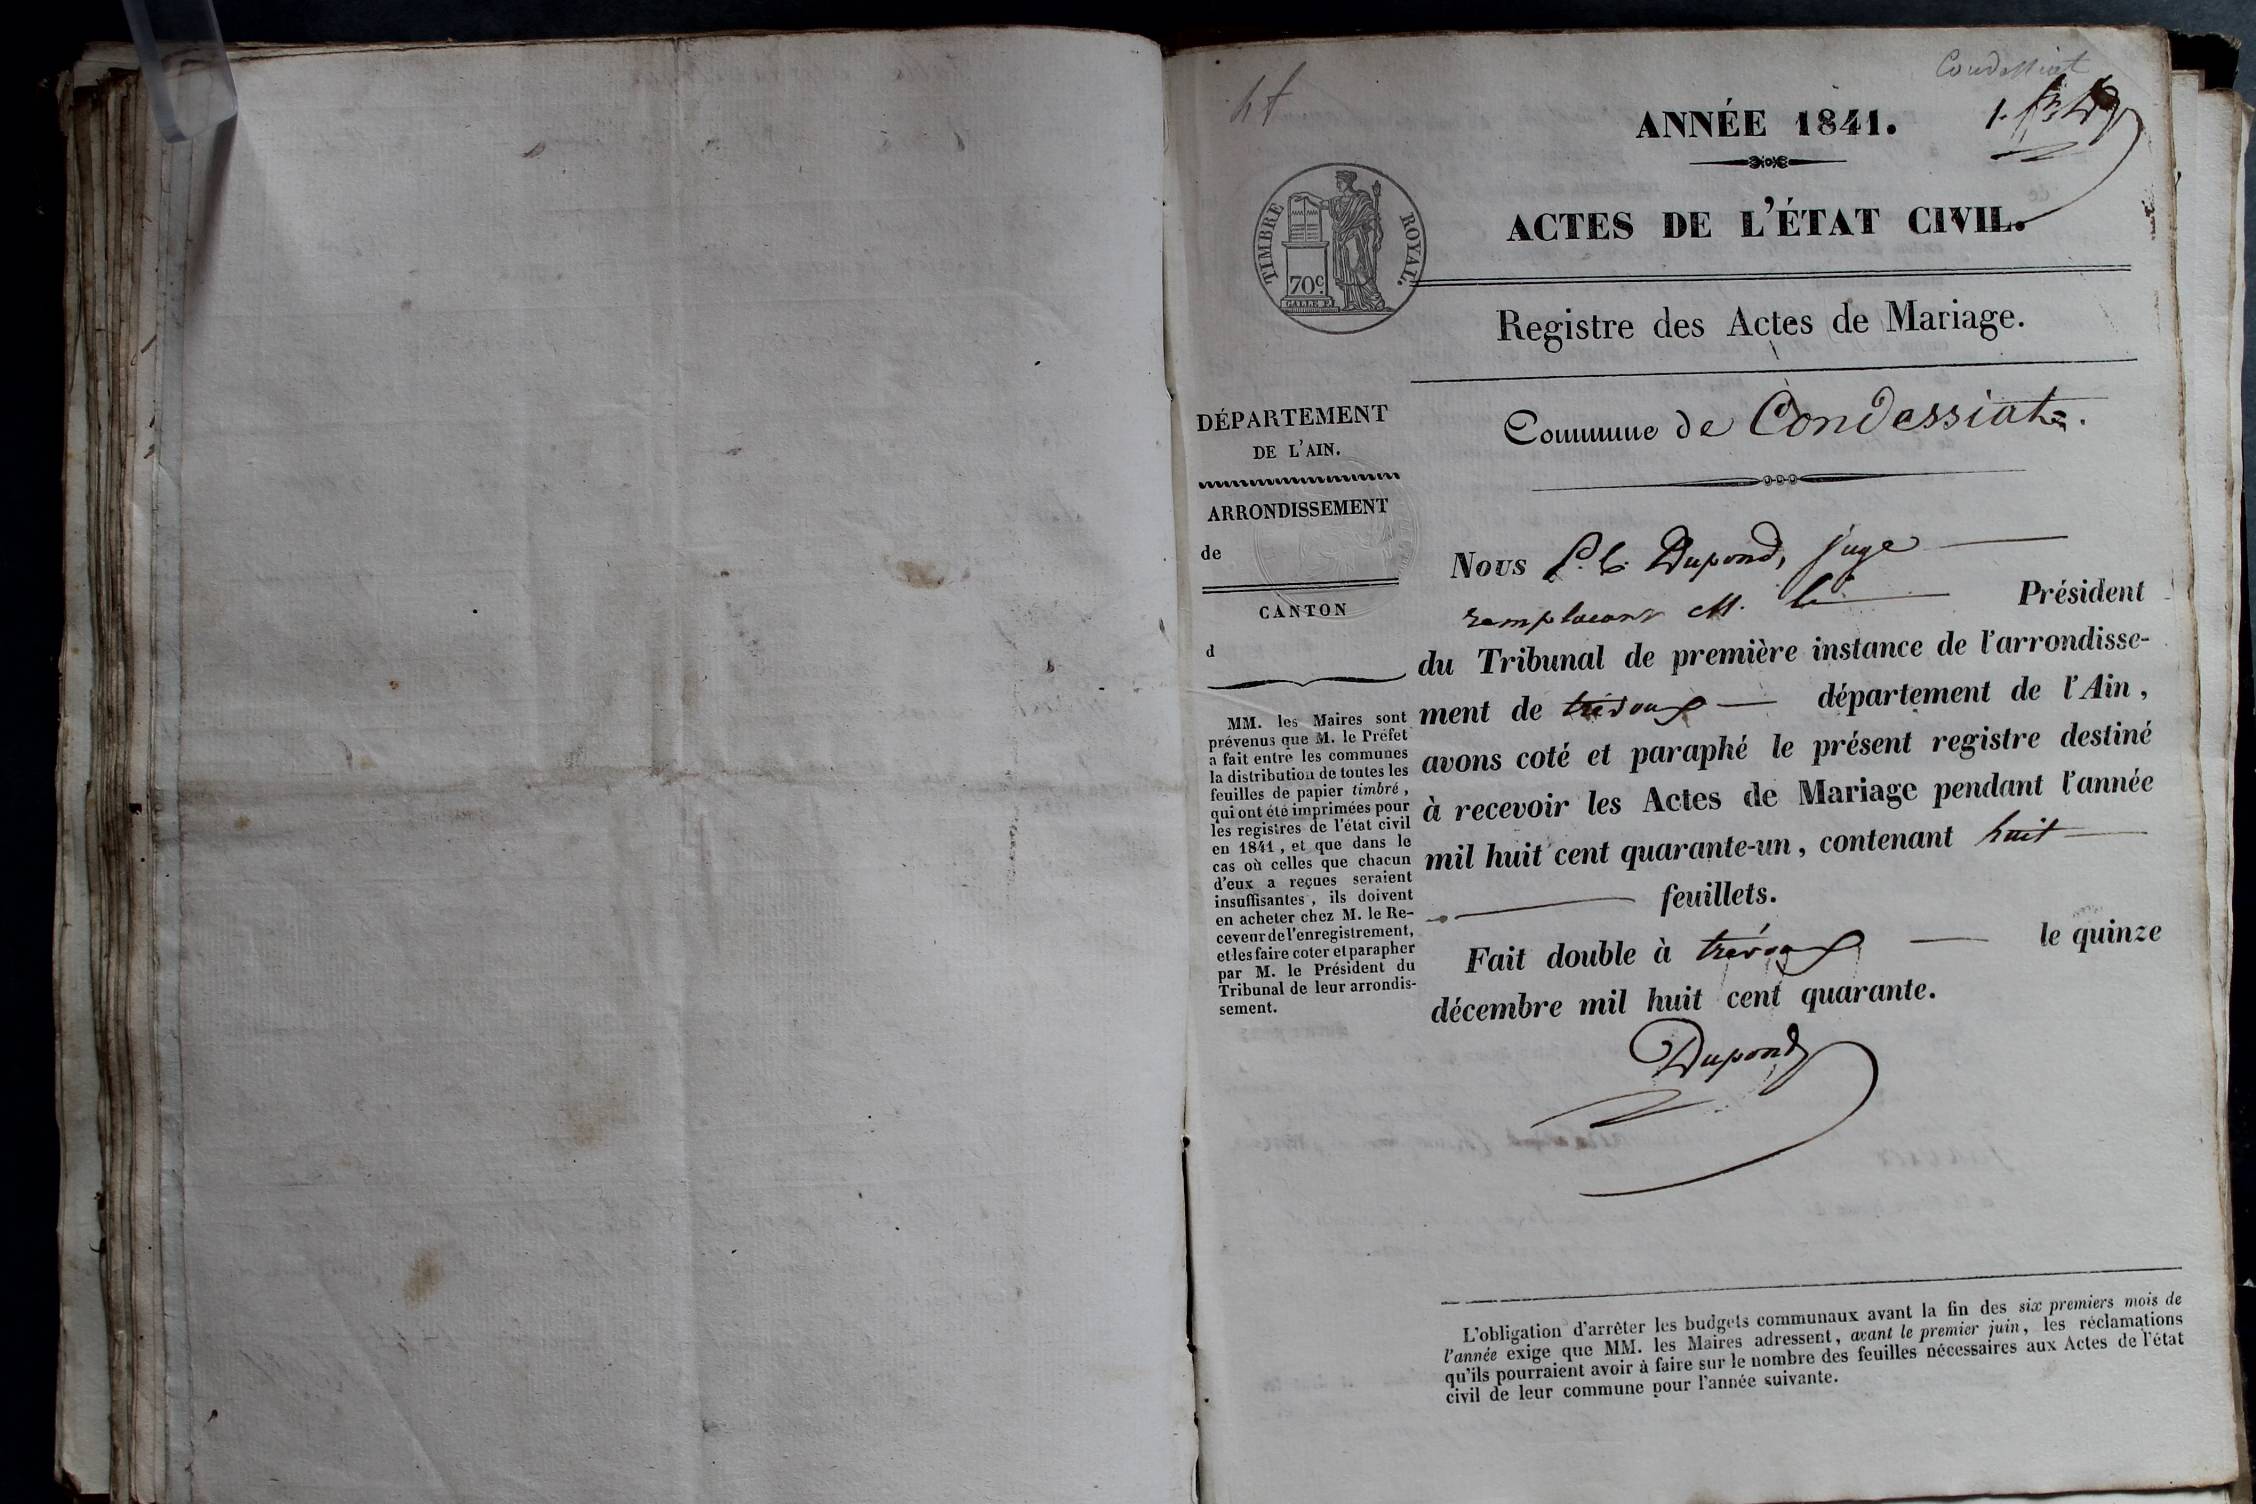 Condessiat
ANNÉE 1841.
ACTES DE L'ÉTAT CIVIL.
TIMBRE ROYAL.
70c.
Registre des Actes de Mariage.
Commune de Condessiat.
DÉPARTEMENT
DE L'AIN.
ARRONDISSEMENT
de
CANTON
d
MM. les Maires sont
prévenus que M. le Préfet
a fait entre les communes
la distribution de toutes les
feuilles de papier timbré,
qui ont été imprimées pour
les registres de l'état civil
en 1841, et que dans le
cas où celles que chacun
d'eux a reçues seraient
insuffisantes, ils doivent
en acheter chez M. le Re-
ceveur de l'enregistrement,
et les faire coter et parapher
par M. le Président du
Tribunal de leur arrondis-
sement.
Nous P. C. Dupond, juge
remplaçant M. le Président
du Tribunal de première instance de l'arrondisse-
ment de trévoux département de l'Ain,
avons coté et paraphé le présent registre destiné
à recevoir les Actes de Mariage pendant l'année
mil huit cent quarante-un, contenant huit
feuillets.
Fait double à trévoux le quinze
décembre mil huit cent quarante.
Dupond
L'obligation d'arrêter les budgets communaux avant la fin des six premiers mois de
l'année exige que MM. les Maires adressent, avant le premier juin, les réclamations
qu'ils pourraient avoir à faire sur le nombre des feuilles nécessaires aux Actes de l'état
civil de leur commune pour l'année suivante.